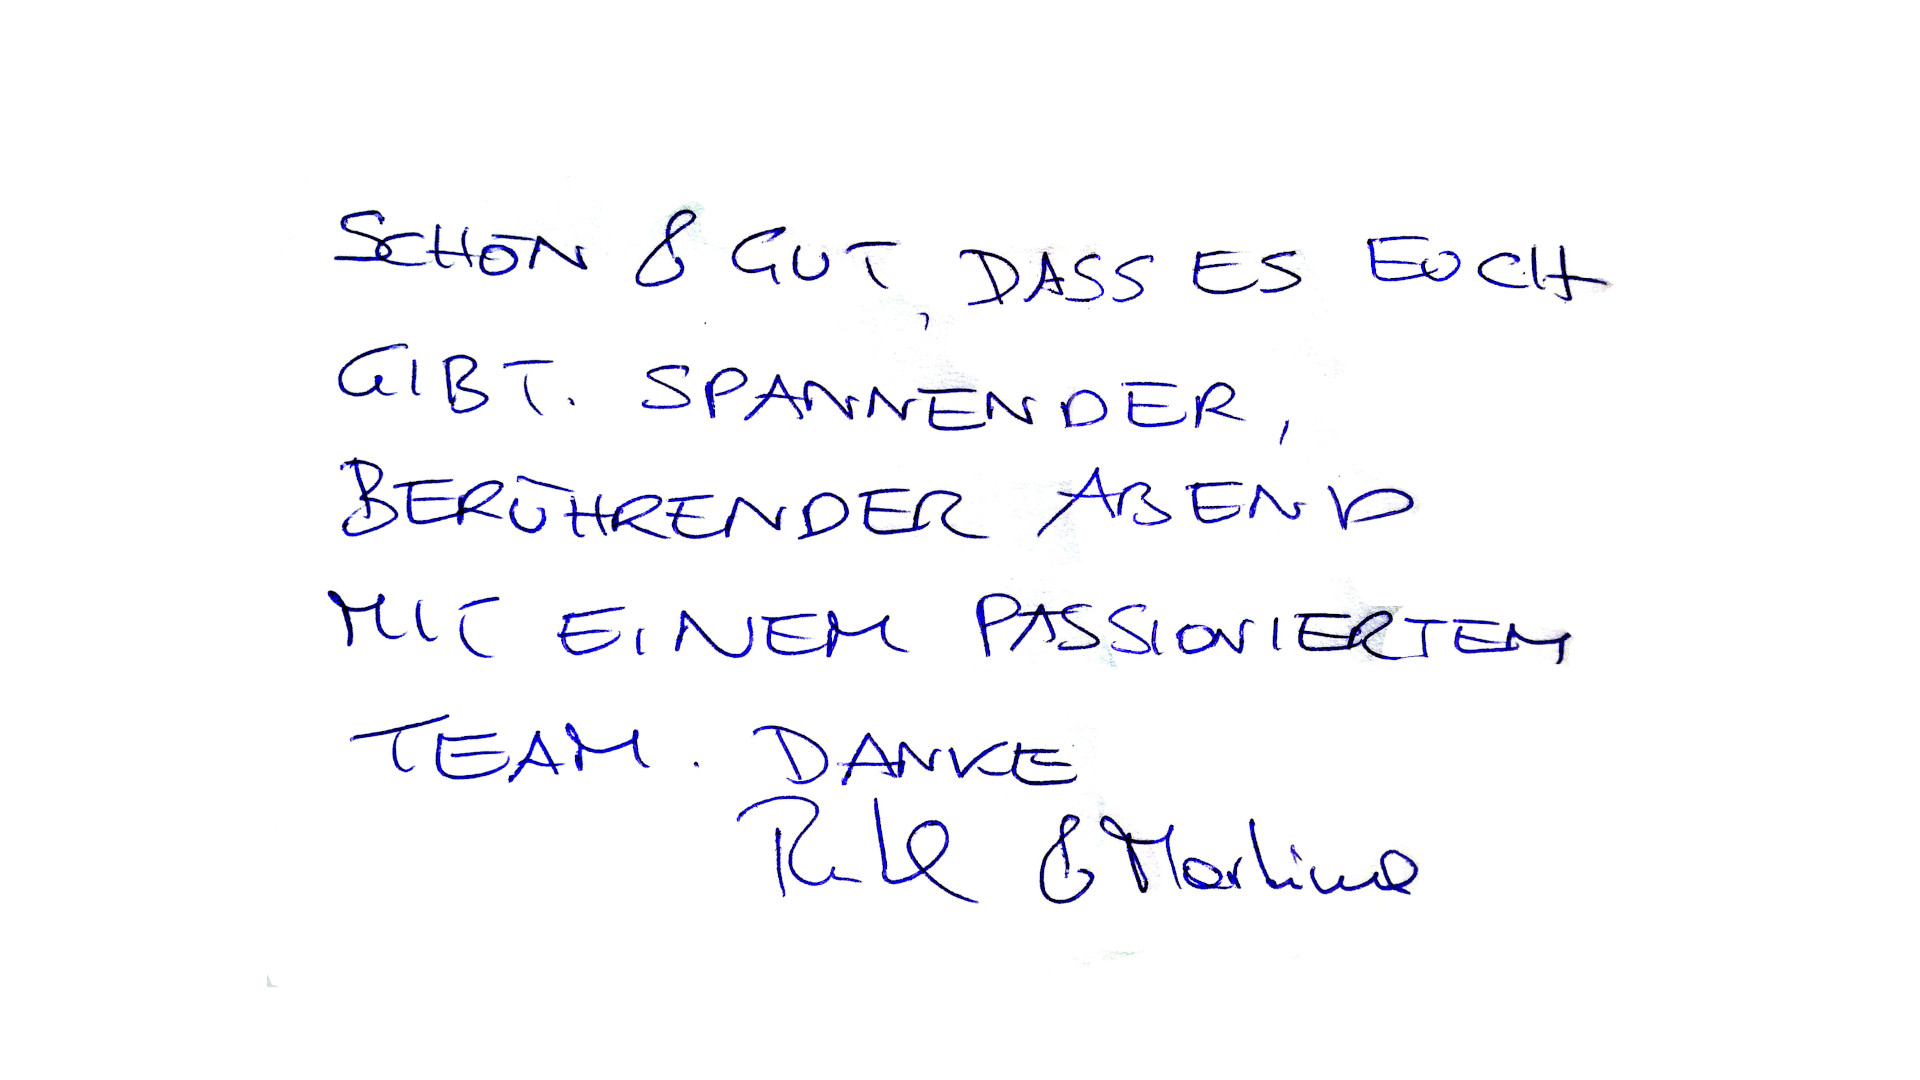 SCHÖN & GUT, DASS ES EUCH
GIBT. SPANNENDER,
BERÜHRENDER ABEND
MIT EINEM PASSIONIERTEM
TEAM. DANKE
& Martina